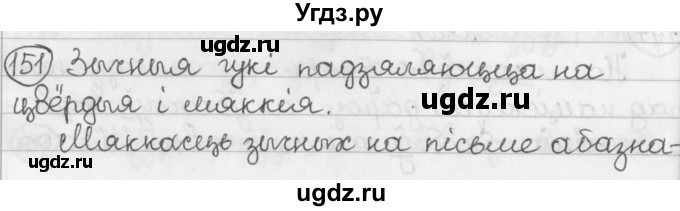 Угдз.ру
151 Зычныя гукі падзяляюцца на
цвёрдыя і мяккія.
Мяккасць зычных на пісьме абазна-
ugdz.ru
ugdz.ru
ugdz.ru
ugdz.ru
ugdz.ru
ugdz.ru